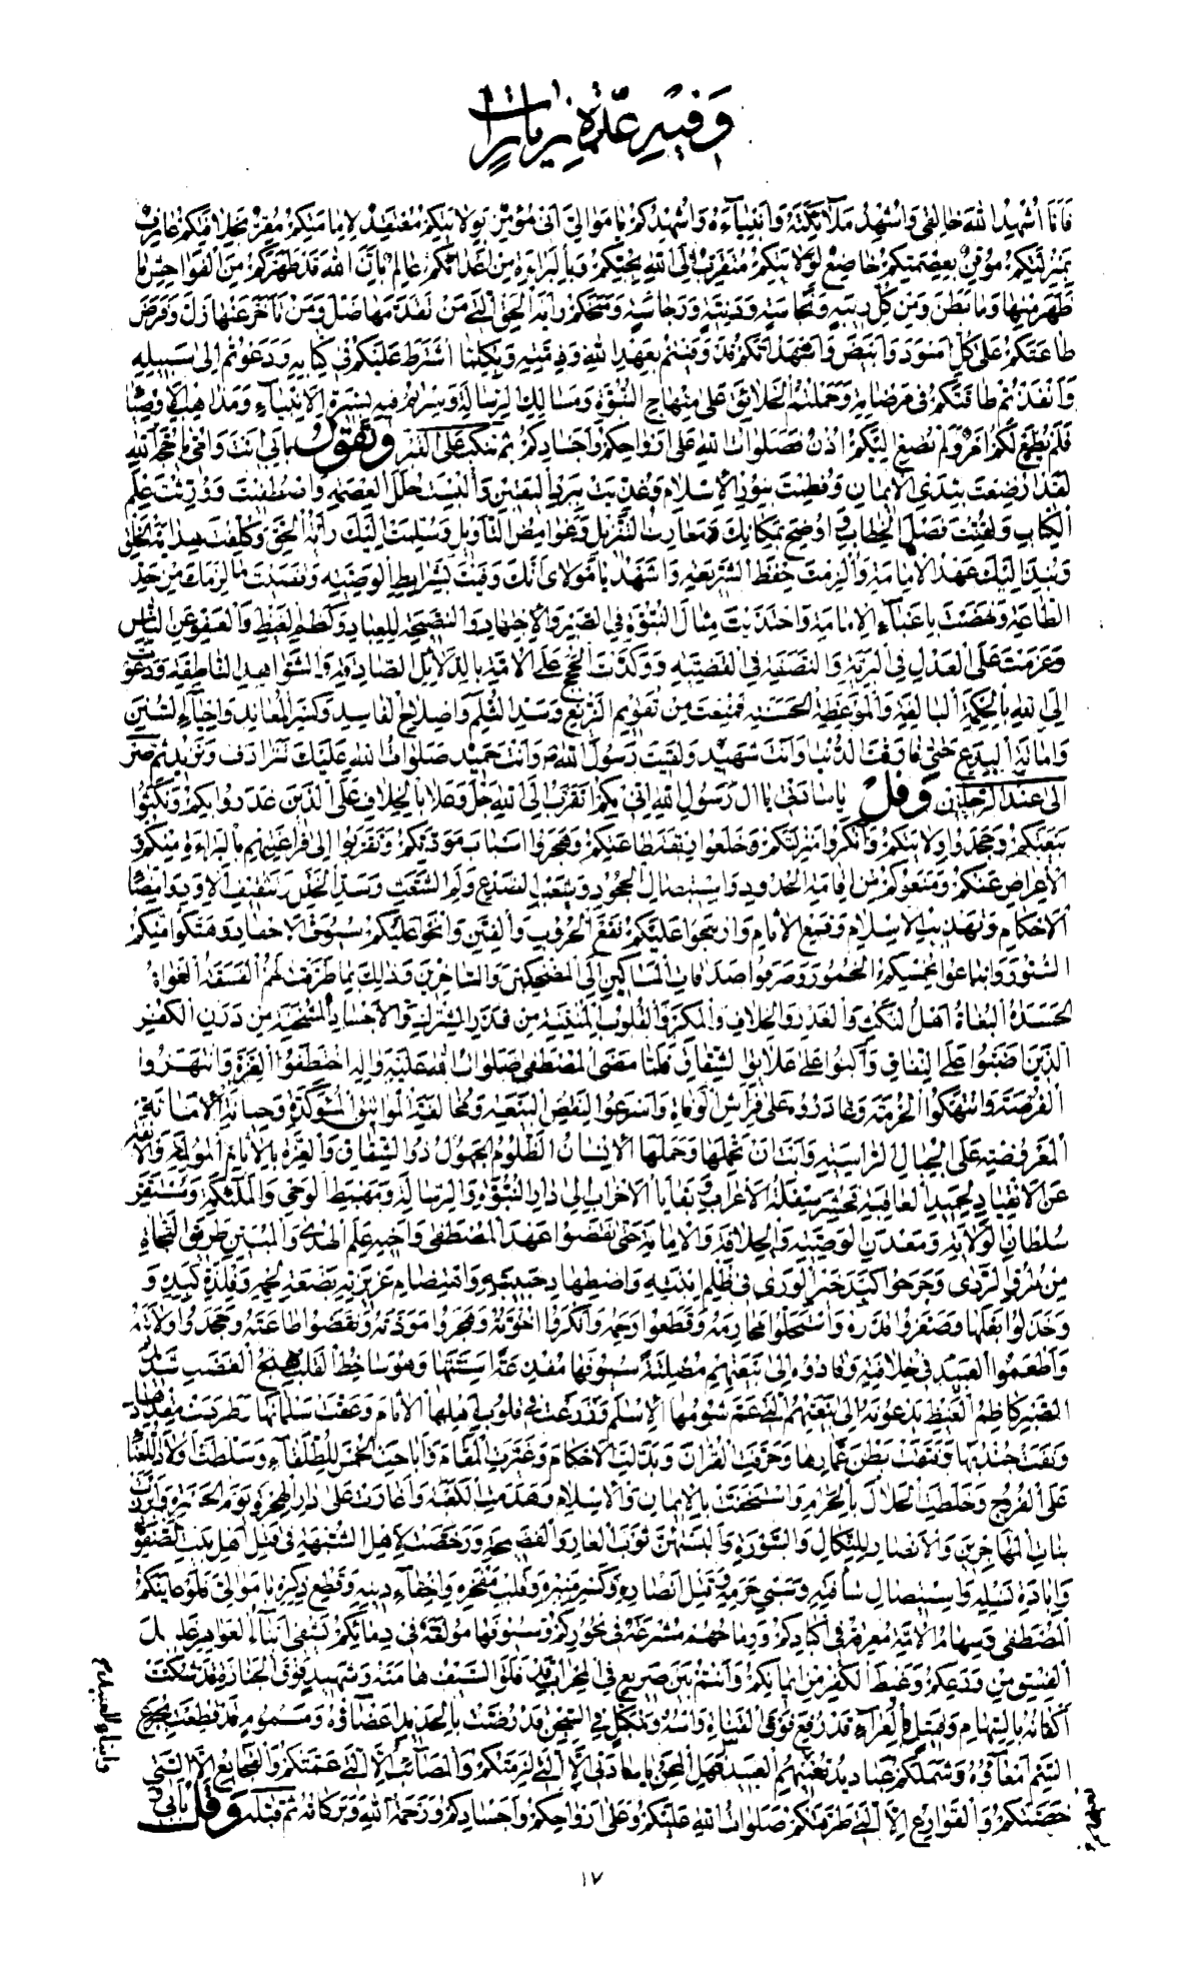 وَفيهِ عِدَّةُ زِيَاراتٍ
فَاَنَا اُشْهِدُ اللهَ خالِقى وَاُشْهِدُ مَلآئِكَتَهُ وَاَنْبِيآءَهُ وَاُشْهِدُكُمْ يا مَوالِىَّ اَنّى مُؤْمِنٌ بِوِلايَتِكُمْ مُعْتَقِدٌ لِاِمامَتِكُمْ مُقِرٌّ بِخِلافَتِكُمْ عارِفٌ
بِمَنْزِلَتِكُمْ مُوقِنٌ بِعِصْمَتِكُمْ خاضِعٌ لِوِلايَتِكُمْ مُتَقَرِّبٌ اِلَى اللهِ بِحُبِّكُمْ وَبِالْبَراءَةِ مِنْ اَعْدآئِكُمْ عالِمٌ بِاَنَّ اللهَ قَدْ طَهَّرَكُمْ مِنَ الْفَواحِشِ ما
ظَهَرَ مِنْها وَما بَطَنَ وَمِنْ كُلِّ رِيبَةٍ وَنَجاسَةٍ وَدَنِيَّةٍ وَرَجاسَةٍ وَمَنَحَكُمْ رايَةَ الْحَقِّ الَّتى مَنْ تَقَدَّمَها ضَلَّ وَمَنْ تَاَخَّرَ عَنْها زَلَّ وَفَرَضَ
طاعَتَكُمْ عَلى كُلِّ اَسْوَدَ وَاَبْيَضَ وَاَشْهَدُ اَنَّكُمْ قَدْ وَفَيْتُمْ بِعَهْدِ اللهِ وَذِمَّتِهِ وَبِكُلِّ مَا اشْتَرَطَ عَلَيْكُمْ فى كِتابِهِ وَدَعَوْتُمْ اِلى سَبيلِهِ
وَاَنْفَدْتُمْ طاقَتَكُمْ فى مَرْضاتِهِ وَحَمَلْتُمُ الْخَلائِقَ عَلى مِنْهاجِ النُّبُوَّةِ وَمَسالِكِ الرِّسالَةِ وَسِرْتُمْ فيهِ بِسيرَةِ الْاَنْبِيآءِ وَمَذاهِبِ الْاَوْصِيآءِ
فَلَمْ يُطَعْ لَكُمْ اَمْرٌ وَلَمْ تُصْغَ اِلَيْكُمْ اُذُنٌ فَصَلَواتُ اللهِ عَلى اَرْواحِكُمْ وَاَجْسادِكُمْ ثم تنكب على القبر وتقول بِاَبى اَنْتَ وَاُمّى يا حُجَّةَ اللهِ
لَقَدْ اُرْضِعْتَ بِثَدْىِ الْاِيمانِ وَفُطِمْتَ بِنُورِ الْاِسْلامِ وَغُذّيتَ بِبَرْدِ الْيَقينِ وَاُلْبِسْتَ حُلَلَ الْعِصْمَةِ وَاصْطُفيتَ وَوُرِّثْتَ عِلْمَ
الْكِتابِ وَلُقِّنْتَ فَصْلَ الْخِطابِ وَاُوضِحَ بِمَكانِكَ مَعارِفُ التَّنْزيلِ وَغَوامِضُ التَّأْويلِ وَسُلِّمَتْ اِلَيْكَ رايَةُ الْحَقِّ وَكُلِّفْتَ هِدايَةَ الْخَلْقِ
وَنُبِذَ اِلَيْكَ عَهْدُ الْاِمامَةِ وَاُلْزِمْتَ حِفْظَ الشَّريعَةِ وَاَشْهَدُ يا مَوْلاىَ اَنَّكَ وَفَيْتَ بِشَرائِطِ الْوَصِيَّةِ وَقَضَيْتَ ما لَزِمَكَ مِنْ حَدِّ
الطّاعَةِ وَنَهَضْتَ بِاَعْبآءِ الْاِمامَةِ وَاحْتَذَيْتَ مِثالَ النُّبُوَّةِ فِى الصَّبْرِ وَالْاِجْتِهادِ وَالنَّصيحَةِ لِلْعِبادِ وَكَظْمِ الْغَيْظِ وَالْعَفْوِ عَنِ النّاسِ
وَعَزَمْتَ عَلَى الْعَدْلِ فِى الْبَرِيَّةِ وَالنَّصَفَةِ فِى الْقَضِيَّةِ وَوَكَّدْتَ الْحُجَجَ عَلَى الْاُمَّةِ بِالدَّلائِلِ الصّادِقَةِ وَالشَّواهِدِ النّاطِقَةِ وَدَعَوْتَ
اِلَى اللهِ بِالْحِكْمَةِ الْبالِغَةِ وَالْمَوْعِظَةِ الْحَسَنَةِ فَمُنِعْتَ مِنْ تَقْويمِ الزَّيْغِ وَسَدِّ الثُّلَمِ وَاِصْلاحِ الْفاسِدِ وَكَسْرِ الْمُعانِدِ وَاِحْيآءِ السُّنَنِ
وَاِماتَةِ الْبِدَعِ حَتّى فارَقْتَ الدُّنْيا وَاَنْتَ شَهيدٌ وَلَقيتَ رَسُولَ اللهِ وَاَنْتَ حَميدٌ صَلَواتُ اللهِ عَلَيْكَ تَتَرادَفُ وَتَزيدُ ثم صر
الى عند الرجلين وقل يا ساداتى يا آلَ رَسُولِ اللهِ اِنّى بِكُمْ اَتَقَرَّبُ اِلَى اللهِ جَلَّ وَعَلا بِالْخِلافِ عَلَى الَّذينَ غَدَرُوا بِكُمْ وَنَكَثُوا
بَيْعَتَكُمْ وَجَحَدُوا وِلايَتَكُمْ وَاَنْكَرُوا مَنْزِلَتَكُمْ وَخَلَعُوا رِبْقَةَ طاعَتِكُمْ وَهَجَرُوا اَسْبابَ مَوَدَّتِكُمْ وَتَقَرَّبُوا اِلى فَراعِنَتِهِمْ بِالْبَراءَةِ مِنْكُمْ وَ
الْاِعْراضِ عَنْكُمْ وَمَنَعُوكُمْ مِنْ اِقامَةِ الْحُدُودِ وَاسْتِيصالِ الْجُحُودِ وَشَعْبِ الصَّدْعِ وَلَمِّ الشَّعَثِ وَسَدِّ الْخَلَلِ وَتَثْقيفِ الْاَوَدِ وَاِمْضآءِ
الْاَحْكامِ وَتَهْذيبِ الْاِسْلامِ وَقَمْعِ الْاٰثامِ وَاَرْهَجُوا عَلَيْكُمْ نَقْعَ الْحُرُوبِ وَالْفِتَنِ وَاَنْحَوْا عَلَيْكُمْ سُيُوفَ الْاَحْقادِ وَهَتَكُوا مِنْكُمُ
السُّتُورَ وَابْتاعُوا بِخُمْسِكُمُ الْخُمُورَ وَصَرَفُوا صَدَقاتِ الْمَساكينِ اِلَى الْمُضْحِكينَ وَالسّاخِرينَ وَذلِكَ بِما طَرَّقَتْ لَهُمُ الْفَسَقَةُ الْغُواةُ
الْحَسَدَةُ الْبُغاةُ اَهْلُ النَّكْثِ وَالْغَدْرِ وَالْخِلافِ وَالْمَكْرِ وَالْقُلُوبِ الْمُنْتِنَةِ مِنْ قَذَرِ الشِّرْكِ وَالْاَجْسادِ الْمُشْحَنَةِ مِنْ دَرَنِ الْكُفْرِ
الَّذينَ اَضَبُّوا عَلَى النِّفاقِ وَاَكَبُّوا عَلى عَلائِقِ الشِّقاقِ فَلَمّا مَضَى الْمُصْطَفى صَلَواتُ اللهِ عَلَيْهِ وَالِهِ اخْتَطَفُوا الْغِرَّةَ وَانْتَهَزُوا
الْفُرْصَةَ وَانْتَهَكُوا الْحُرْمَةَ وَغادَرُوهُ عَلى فِراشِ الْوَفاةِ وَاَسْرَعُوا لِنَقْضِ الْبَيْعَةِ وَمُخالَفَةِ الْمَواثيقِ الْمُؤَكَّدَةِ وَخِيانَةِ الْاَمانَةِ
الْمَعْرُوضَةِ عَلَى الْجِبالِ الرّاسِيَةِ وَاَبَتْ اَنْ تَحْمِلَها وَحَمَلَهَا الْاِنْسانُ الظَّلُومُ الْجَهُولُ ذُو الشِّقاقِ وَالْعِزَّةِ بِالْاٰثامِ الْمُولِمَةِ وَالْاَنَفَةِ
عَنِ الْاِنْقِيادِ لِحَميدِ الْعاقِبَةِ فَحُشِرَ سِفْلَةُ الْاَعْرابِ وَبَقايَا الْاَحْزابِ اِلى دارِ النُّبُوَّةِ وَالرِّسالَةِ وَمَهْبِطِ الْوَحْىِ وَالْمَلٰئِكَةِ وَمُسْتَقَرِّ
سُلْطانِ الْوِلايَةِ وَمَعْدِنِ الْوَصِيَّةِ وَالْخِلافَةِ وَالْاِمامَةِ حَتّى نَقَضُوا عَهْدَ الْمُصْطَفى فى اَخيهِ عَلَمِ الْهُدى وَالْمُبَيِّنِ طَريقَ النَّجاةِ
مِنْ طُرُقِ الرَّدى وَجَرَحُوا كَبِدَ خَيْرِ الْوَرى فى ظُلْمِ ابْنَتِهِ وَاضْطِهادِ حَبيبَتِهِ وَاهْتِضامِ عَزيزَتِهِ بَضْعَةِ لَحْمِهِ وَفِلْذَةِ كَبِدِهِ وَ
خَذَلُوا بَعْلَها وَصَغَّرُوا قَدْرَهُ وَاسْتَحَلُّوا مَحارِمَهُ وَقَطَعُوا رَحِمَهُ وَاَنْكَرُوا اُخُوَّتَهُ وَهَجَرُوا مَوَدَّتَهُ وَنَقَضُوا طاعَتَهُ وَجَحَدُوا وِلايَتَهُ
وَاَطْمَعُوا الْعَبيدَ فى خِلافَتِهِ وَقادُوهُ اِلى بَيْعَتِهِمْ مُصْلِتَةً سُيُوفَها مُقْذِعَةً اَسِنَّتَها وَهُوَ ساخِطُ الْقَلْبِ هائِجُ الْغَضَبِ شَديدُ
الصَّبْرِ كاظِمُ الْغَيْظِ يَدْعُونَهُ اِلى بَيْعَتِهِمُ الَّتى عَمَّ شُومُهَا الْاِسْلامَ وَزَرَعَتْ فى قُلُوبِ اَهْلِهَا الْاٰثامَ وَعَقَّتْ سَلْمانَها وَطَرَدَتْ مِقْدادَها
وَنَفَتْ جُنْدُبَها وَفَتَقَتْ بَطْنَ عَمّارِها وَحَرَّفَتِ الْقُرْانَ وَبَدَّلَتِ الْاَحْكامَ وَغَيَّرَتِ الْمَقامَ وَاَباحَتِ الْخُمْسَ لِلطُّلَقآءِ وَسَلَّطَتْ اَوْلادَ اللُّعَنآءِ
عَلَى الْفُرُوجِ وَخَلَطَتِ الْحَلالَ بِالْحَرامِ وَاسْتَخَفَّتْ بِالْاِيمانِ وَالْاِسْلامِ وَهَدَمَتِ الْكَعْبَةَ وَاَغارَتْ عَلى دارِ الْهِجْرَةِ يَوْمَ الْحَرَّةِ وَاَبْرَزَتْ
بَناتِ الْمُهاجِرينَ وَالْاَنْصارِ لِلنَّكالِ وَالسَّوْرَةِ وَاَلْبَسَتْهُنَّ ثَوْبَ الْعارِ وَالْفَضيحَةِ وَرَخَّصَتْ لِاَهْلِ الشُّبْهَةِ فى قَتْلِ اَهْلِ بَيْتِ الصَّفْوَةِ
وَاِبادَةِ نَسْلِهِ وَاسْتيصالِ شَاْفَتِهِ وَسَبْىِ حَرَمِهِ وَقَتْلِ اَنْصارِهِ وَكَسْرِ مِنْبَرِهِ وَقَلْبِ مَفْخَرِهِ وَاِخْفآءِ دينِهِ وَقَطْعِ ذِكْرِهِ يا مَوالِىَّ فَلَوْ عايَنَكُمُ
الْمُصْطَفى وَسِهامُ الْاُمَّةِ مُغْرَقَةٌ فى اَكْبادِكُمْ وَرِماحُهُمْ مُشْرَعَةٌ فى نُحُورِكُمْ وَسُيُوفُها مُولَغَةٌ فى دِمائِكُمْ يَشْفى اَبْنآءُ الْعَواهِرِ غَليلَ
الْفِسْقِ مِنْ وَرَعِكُمْ وَغَيْظَ الْكُفْرِ مِنْ ايمانِكُمْ وَاَنْتُمْ بَيْنَ صَريعٍ فِى الْمِحْرابِ قَدْ فَلَقَ السَّيْفُ هامَتَهُ وَشَهيدٍ فَوْقَ الْجَنازَةِ قَدْ شُكَّتْ
اَكْفانُهُ بِالسِّهامِ وَقَتيلٍ بِالْعَرآءِ قَدْ رُفِعَ فَوْقَ الْقَناةِ رَاْسُهُ وَمُكَبَّلٍ فِى السِّجْنِ قَدْ رُضَّتْ بِالْحَديدِ اَعْضآؤُهُ وَمَسْمُومٍ قَدْ قُطِّعَتْ بِجُرَعِ
السَّمِّ اَمْعآؤُهُ وَشَمْلُكُمْ عَباديدُ تُفْنيهِمُ الْعَبيدُ فَهَلِ الْمِحَنُ يا ساداتى اِلَّا الَّتى لَزِمَتْكُمْ وَالْمَصائِبُ اِلَّا الَّتى عَمَّتْكُمْ وَالْفَجايِعُ اِلَّا الَّتى
خَصَّتْكُمْ وَالْقَوارِعُ اِلَّا الَّتى طَرَقَتْكُمْ صَلَواتُ اللهِ عَلَيْكُمْ وَعَلى اَرْواحِكُمْ وَاَجْسادِكُمْ وَرَحْمَةُ اللهِ وَبَرَكاتُهُ ثم قبله وقل بِاَبى وَ
وابناء العبيد
١٧